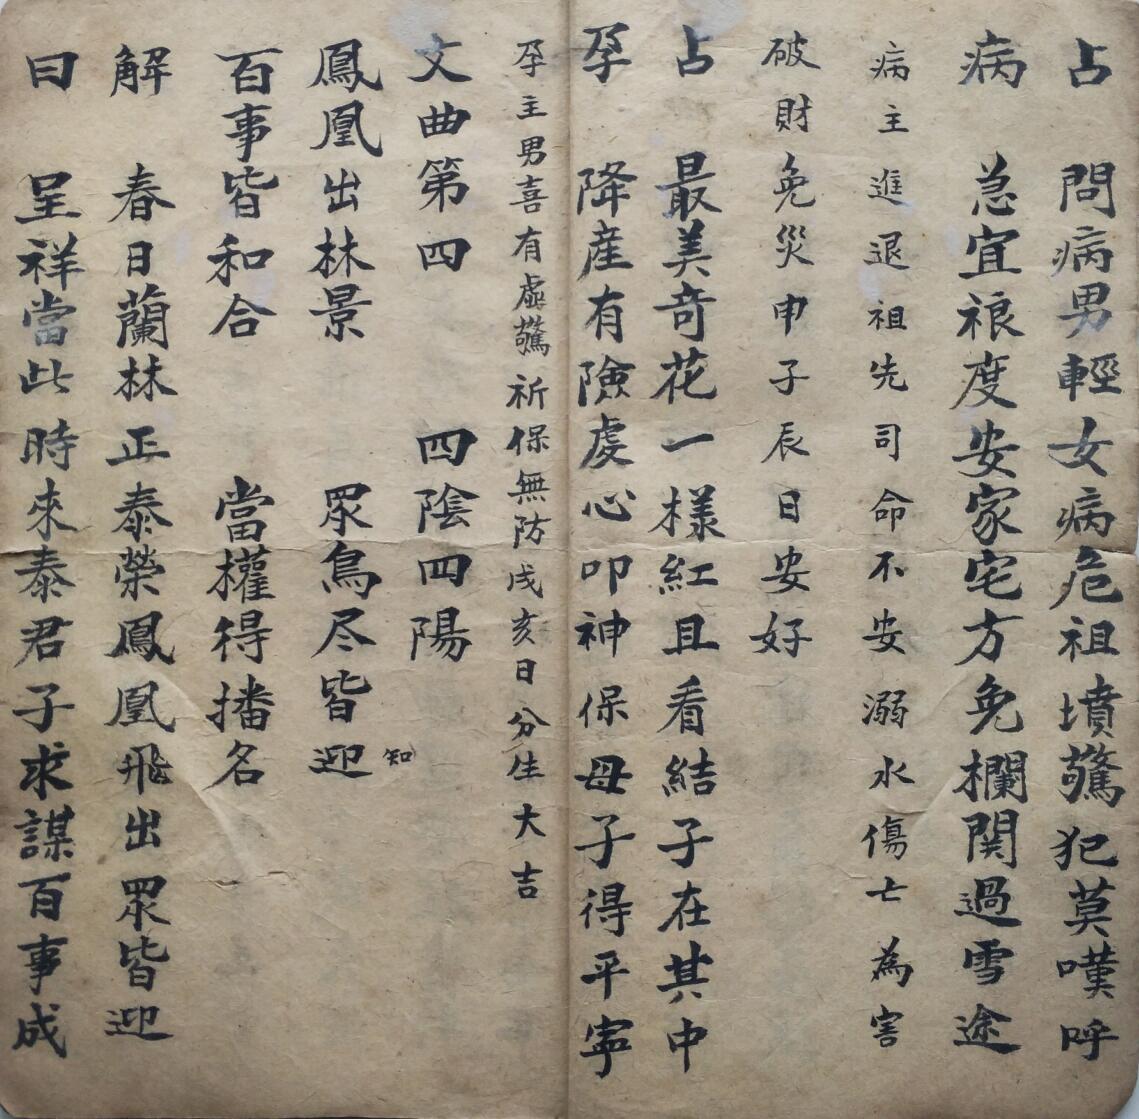 占 問病男輕女病危祖墳驚犯莫嘆呼
病 急宜裉度安家宅方免欄関過雪途
病主進退祖先司命不安溺水傷亡為害
破財免災申子辰日安好
占 最美奇花一樣紅且看結子在其中
孕 降産有險虔心叩神保母子得平寧
孕主男喜有虛驚祈保無防戌亥日分生大吉
文曲第四 四陰四陽
鳳凰出林景 眾鳥尽皆迎
知
百事皆和合 當權得播名
解 春日蘭林正泰榮鳳凰飛出眾皆迎
曰 呈祥當此時來泰君子求謀百事成